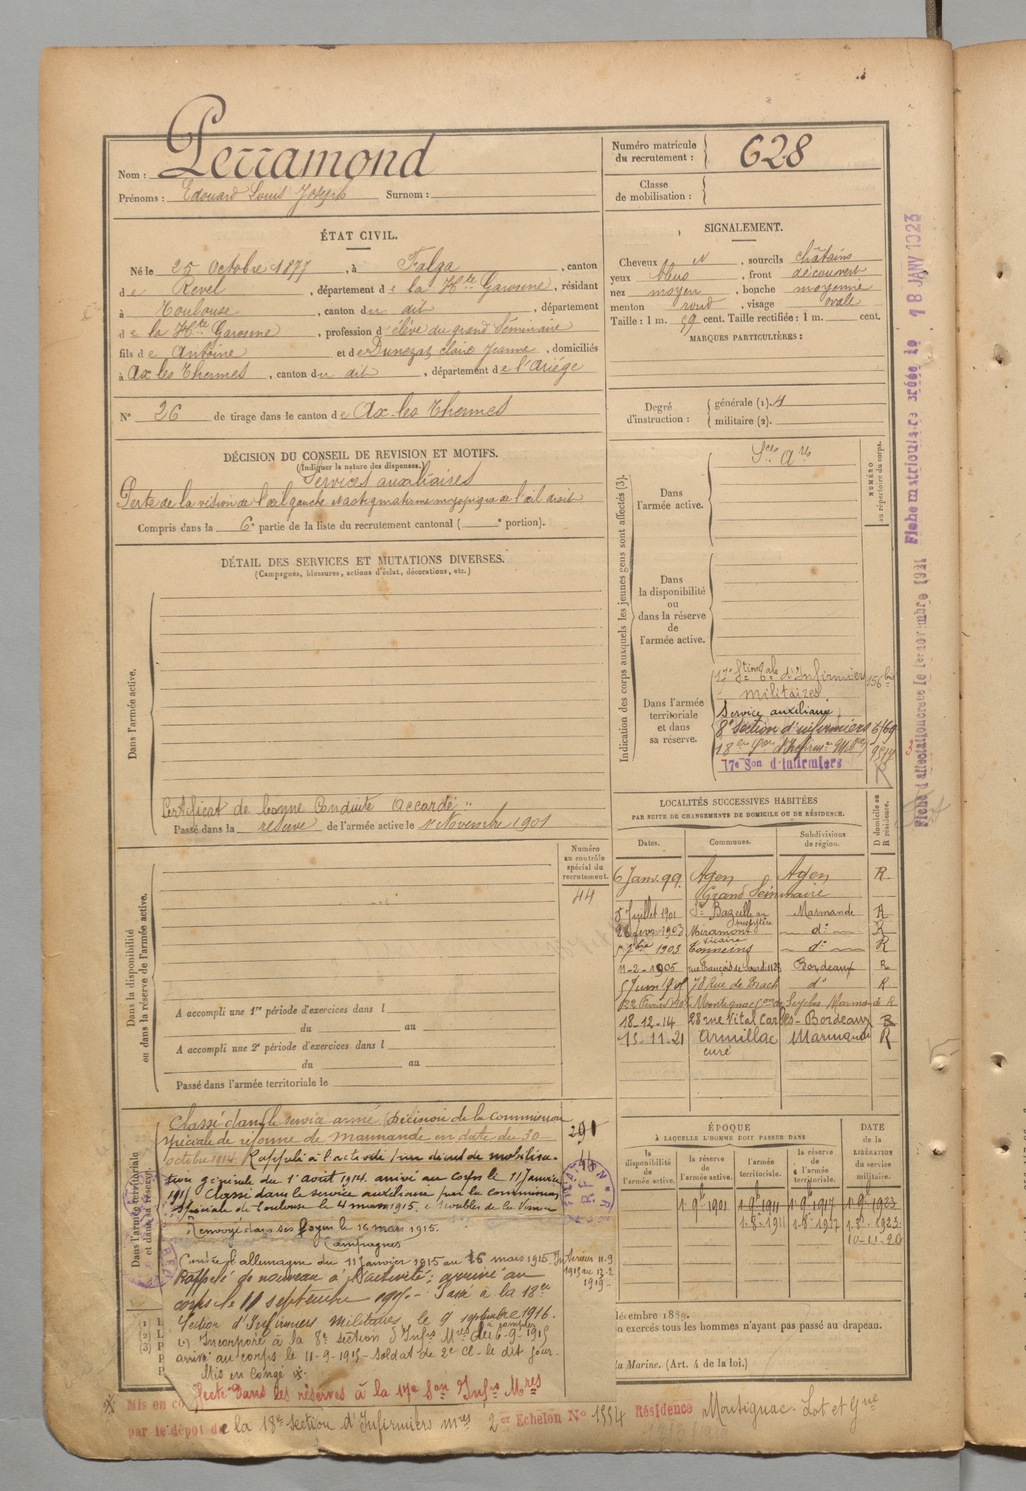 Nom : Perramond
Prénoms : Edouard Louis Joseph Surnom :
Numéro matricule du recrutement : 628
Classe de mobilisation :
ÉTAT CIVIL.
Né le 25 Octobre 1877, à Falga, canton
de Revel, département de la Hte Garonne, résidant
à Toulouse, canton du dit, département
de la Hte Garonne, profession d'élève du grand Séminaire
fils de Antoine et de Claire Jeanne, domiciliés
à Ax les Thermes, canton du dit, département de l'Ariège
N° 26 de tirage dans le canton de Ax-les Thermes
SIGNALEMENT.
Cheveux N, sourcils châtains
yeux bleus, front découvert
nez moyen, bouche moyenne
menton rond, visage ovale
Taille : 1 m. 69 cent. Taille rectifiée : 1 m. cent.
MARQUES PARTICULIÈRES :
Degré d'instruction : générale (1). 4
militaire (2).
DÉCISION DU CONSEIL DE REVISION ET MOTIFS.
(Indiquer la nature des dispenses.)
Services auxiliaires
Perte de la vision de l'œil gauche de l'œil droit
Compris dans la 6e partie de la liste du recrutement cantonal ( e portion).
DÉTAIL DES SERVICES ET MUTATIONS DIVERSES.
(Campagnes, blessures, actions d'éclat, décorations, etc.)
Dans l'armée active.
Certificat de bonne Conduite Accordé
Passé dans la réserve de l'armée active le 1er Novembre 1901
Indication des corps auxquels les jeunes gens sont affectés (3).
NUMÉRO au répertoire du corps.
Dans l'armée active.
Sces Ares
Dans la disponibilité ou dans la réserve de l'armée active.
Dans l'armée territoriale et dans sa réserve.
d'Infirmiers
militaires.
Service auxiliaire
8e Section d'infirmiers
17e Son d'Infirmiers
Fiche matriculaire créée le 18 JANV 1923
LOCALITÉS SUCCESSIVES HABITÉES
PAR SUITE DE CHANGEMENTS DE DOMICILE OU DE RÉSIDENCE.
Dates. Communes. Subdivisions de région. D domicile ou R résidence.
6 Janv. 99. Agen Grand Séminaire Agen R
Juillet 1901 Ste Bazeille Marmande R
1903 Miramont do R
1903 Tonneins vicaire do R
11-2-1905 Bordeaux R
Juin do R
22 Février Montignac R
18-12-14 28 rue Vital Carles - Bordeaux R
15-11-21 Armillac curé Marmande R
Numéro au contrôle spécial du recrutement.
44
Dans la disponibilité ou dans la réserve de l'armée active.
A accompli une 1re période d'exercices dans l
du au
A accompli une 2e période d'exercices dans l
du au
Passé dans l'armée territoriale le
Dans l'armée territoriale et dans sa réserve.
Classé dans le service armé (Décision de la Commission
spéciale de réforme de Marmande en date du 30
octobre 1914. Rappelé à l'activité (par décret de mobilisa-
tion générale du 1er août 1914. arrivé au corps le 11 Janvier
1915. Classé dans le service auxiliaire par la commission
spéciale de Toulouse le 4 mars 1915, troubles de la vision
Renvoyé dans ses foyers le 16 mars 1915.
Campagnes
Contre l'allemagne du 11 janvier 1915 au 16 mars 1915. Intérieur 11-9-1915 au 12-2-1919
Rappelé de nouveau à l'activité ; arrivé au
corps le 11 septembre 1915. Passé à la 18e
Section d'Infirmiers militaires le 9 septembre 1916.
Incorporé à la 8e section d'Infrs Mres à compter du 6-9-1915
arrivé au corps le 11-9-1915 - soldat de 2e Cl. le dit jour.
Mis en Congé
dans les réserves à la 17e Son Infrs Mres
Mis en
par le dépot de la 18e Section d'Infirmiers Mres 2er Echelon N° 1554 Résidence Montignac - Lot et Gne
ÉPOQUE
À LAQUELLE L'HOMME DOIT PASSER DANS
DATE de la LIBÉRATION du service militaire.
la disponibilité de l'armée active. la réserve de l'armée active. l'armée territoriale. la réserve de l'armée territoriale.
1er 9bre 1901 1er 9bre 1911 1er 9bre 1917 1er 9bre 1923
10-11-26
décembre 1889.
on exercés tous les hommes n'ayant pas passé au drapeau.
la Marine. (Art. 4 de la loi.)